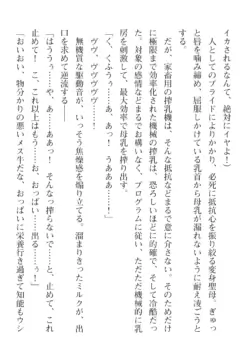 イカされるなんて、絶対にイヤよ！
　人としてのプライドにより​かかり、必死に抵抗心を振り絞る変身聖母。ぎゅっ
と唇を噛み締め、屈服しかけている乳首から母乳が漏れないように耐え凌ごうと
する。
　だが、家畜用の搾乳機は、そんな抵抗などまるで意に介さない。
　極限まで効率化された機械の搾乳は、恐ろしいほどに的確で、そして冷酷だっ
た。対象の感情などお構いなく、プログラムに従って、ただただ機械的に乳
房を刺激して、最大効率で母乳を搾り出す。
「く、くふうぅ…ぁ…あああっ！　うあああ…！」
　ヴヴ、ヴヴヴヴヴ……！
　無機質な駆動音が、いっそう焦燥感を煽り立てる。溜まりきったミルクが、出
口を求めて逆流する！
「はううぅ…や、あ…ああっ！　そんなっ搾らないで…と、止めて、これ
止めて！　こ、これ以上はもう、お、おっぱい……出る……ぅ！」
「おいおい、物分かりの悪いメス牛だな。おっぱいに栄養行き過ぎて知能もウシ